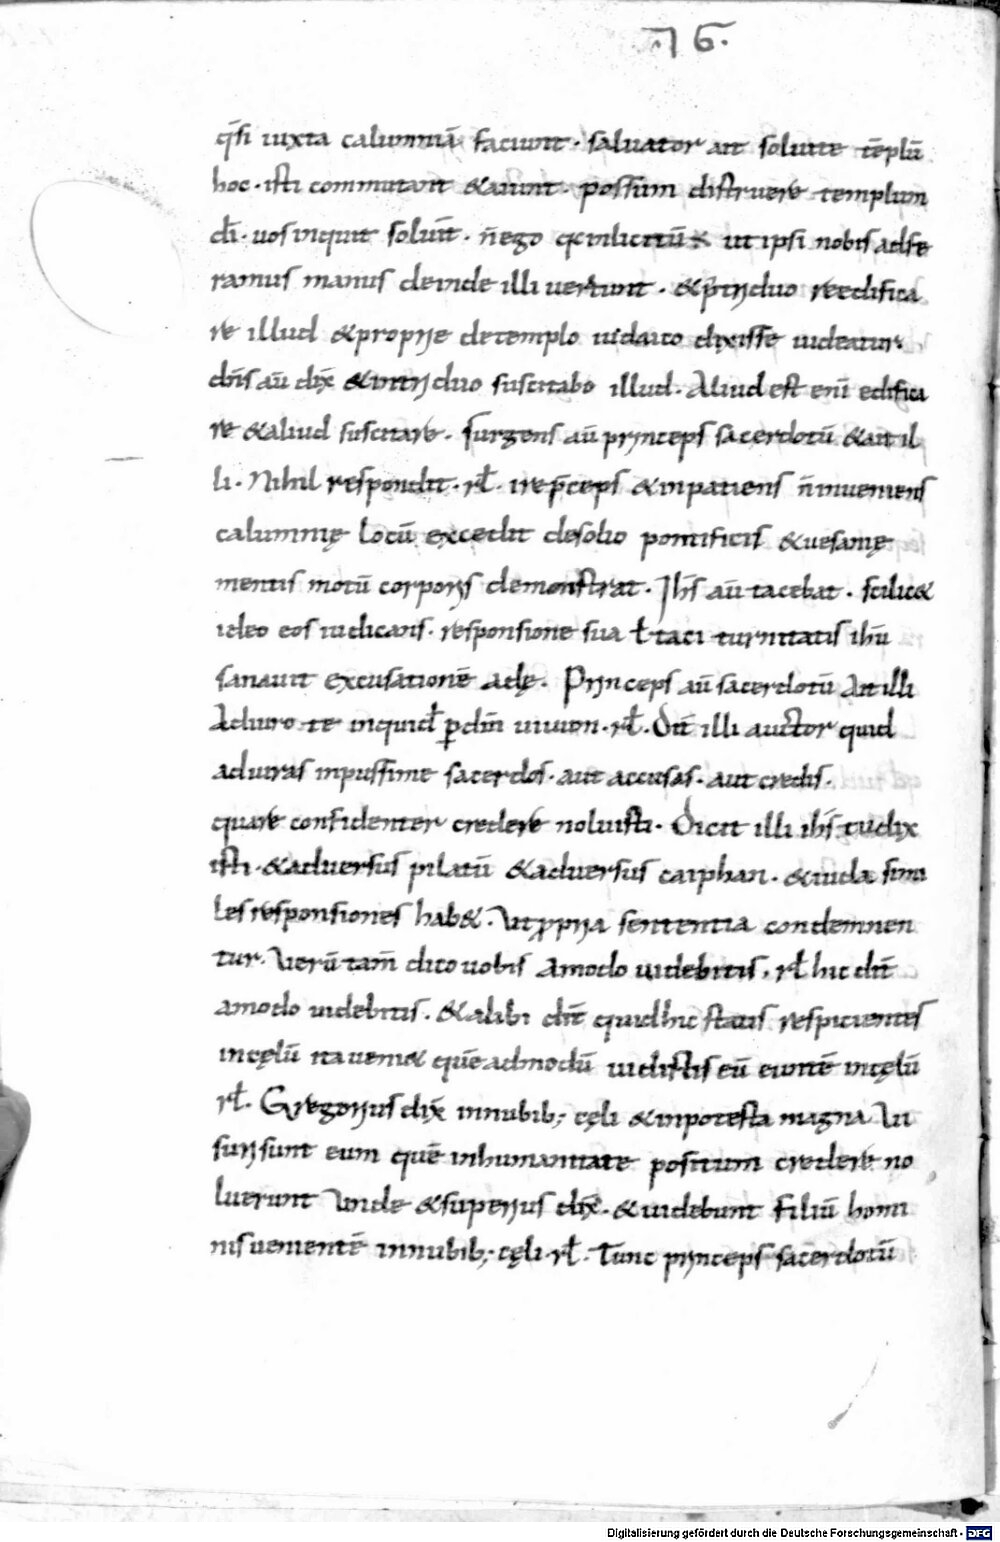 .76.
q̄si iuxta calumniā faciunt · saluator ait soluite tēplū
hoc · isti commutant &aiunt possum distruere templum
dī · uos inquit soluit̄ · n̄ego q& inlicitū ÷ ut ipsi nobis adfe
ramus manus deinde illi uertunt · &p̄ trijduo reedifica
re illud &proprije detemplo iudaico dixisse uideatur ·
dn̄s aū dix̄ &intrijduo suscitabo illud · Aliud est enī edifica
re &aliud suscitare · surgens aū princeps sacerdotū &ait il
li · Nihil respondit · rł · ire p̄ceps &inpatiens n̄ inueniens
calumnię locū excedit desolio pontificis &uesanię
mentis motū corporijs demonstrat · Ihs̄ aū tacebat · scilic&
ideo eos iudicans · responsione sua ł taci turnitatis ihū
sanauit excusationē adę · Prijnceps aū sacerdotū Ait illi
Adiuro te inquid ꝑ dm̄ uiuum · rł · Dn̄ illi auctor quid
adiuras inpussime sacerdos · aut accusas · aut credis ·
quare confidenter credere noluisti · Dicit illi ihs̄ tudix
isti · &aduersus pilatū &aduersus caiphan · &iuda simi
les responsiones hab& · Ut ꝓprija sententia condemnen
tur · Uerū tam̄ dico uobis Amodo uidebitis · rł hic dn̄t
amodo uidebitis · &alibi dn̄t quidhic statis respicientes
incęlū ita ueni& quēadmodū uidistis eū euntē incęlū
rł · Gregorijus dix̄ innubib; cęli &inpotesta magna Ui
surij sunt eum quē inhumanitate positum credere no
luerunt Unde &superijus dix̄ · &uidebunt filiū homi
nis uenientē innubib; cęli · rł · Tunc prijnceps sacerdotū
Digitalisierung gefördert durch die Deutsche Forschungsgemeinschaft - DFG